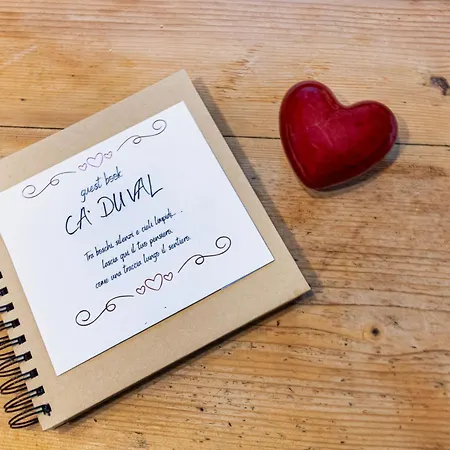 guest book
CA' DUVAL
Tra boschi, silenzi e cieli limpidi...
lascia qui il tuo pensiero,
come una traccia lungo il sentiero.